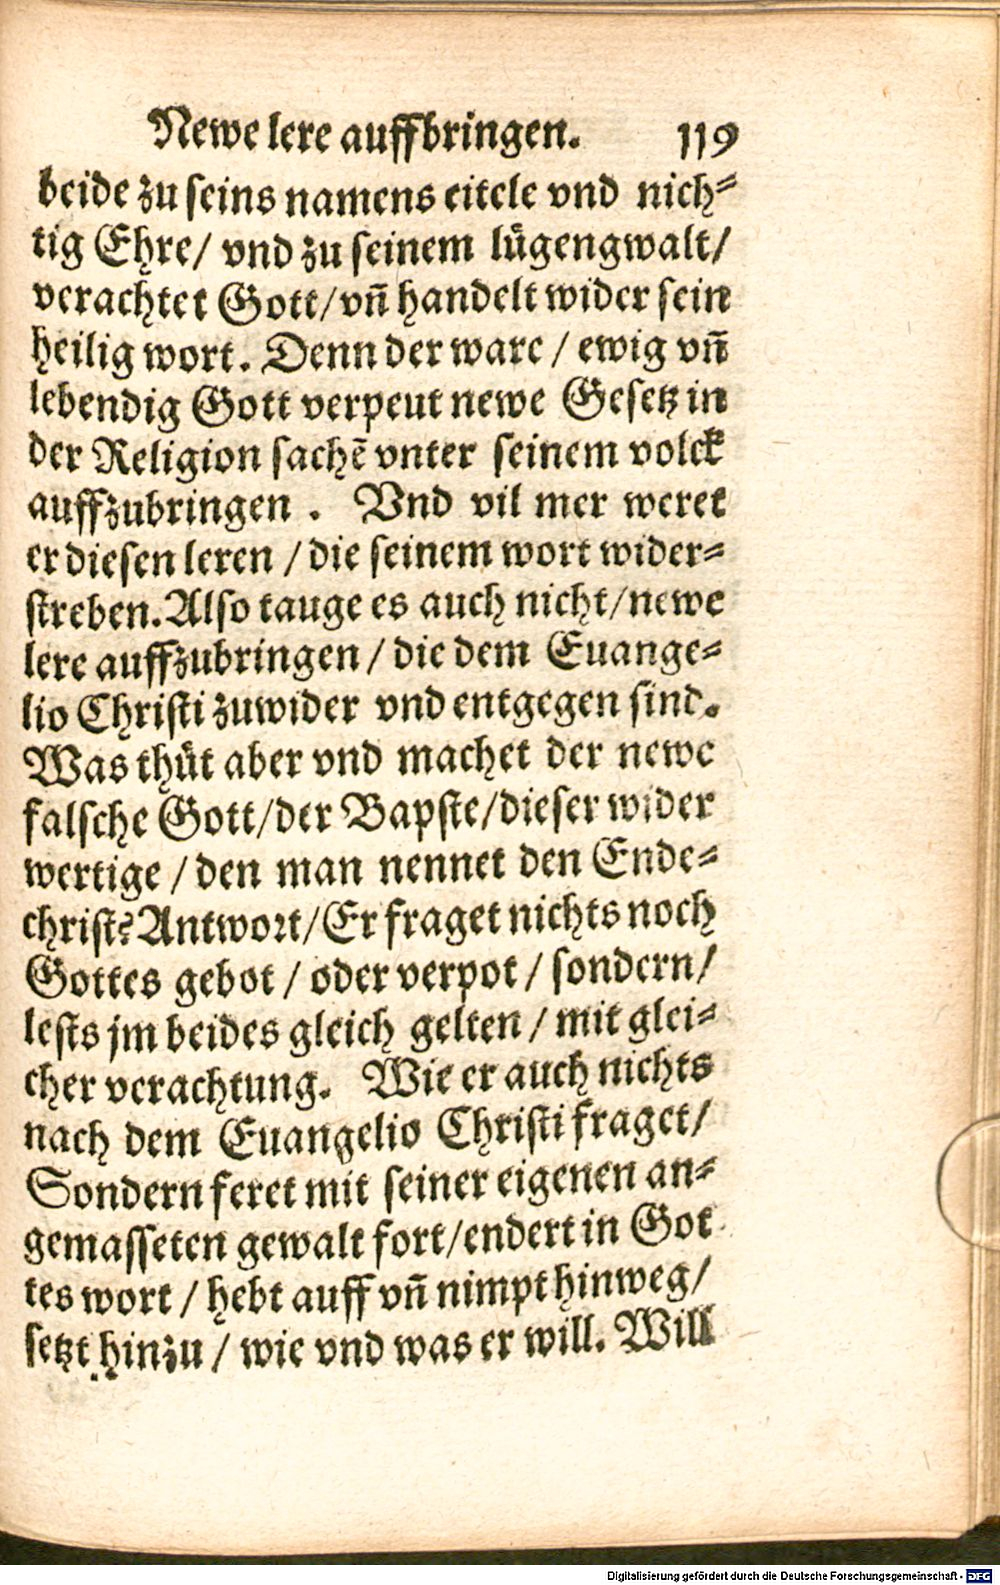 Newe lere auffbringen. 119
beide zu seins namens eitele vnd nich⸗
tig Ehre/ vnd zu seinem lügengwalt/
verachtet Gott/vn̄ handelt wider sein
heilig wort. Denn der ware / ewig vn̄
lebendig Gott verpeut newe Gesetz in
der Religion sachē vnter seinem volck
auffzubringen . Vnd vil mer weret
er diesen leren / die seinem wort wider⸗
streben. Also tauge es auch nicht/newe
lere auffzubringen / die dem Euange⸗
lio Christi zuwider vnd entgegen sind.
Was thůt aber vnd machet der newe
falsche Gott/der Bapste/dieser wider
wertige / den man nennet den Ende⸗
christ? Antwort/Er fraget nichts noch
Gottes gebot / oder verpot / sondern/
lests jm beides gleich gelten / mit glei⸗
cher verachtung. Wie er auch nichts
nach dem Euangelio Christi fraget/
Sondern feret mit seiner eigenen an⸗
gemasseten gewalt fort/endert in Got
tes wort / hebt auff vn̄ nimpt hinweg/
setzt hinzu / wie vnd was er will. Will
Digitalisierung gefördert durch die Deutsche Forschungsgemeinschaft - DFG